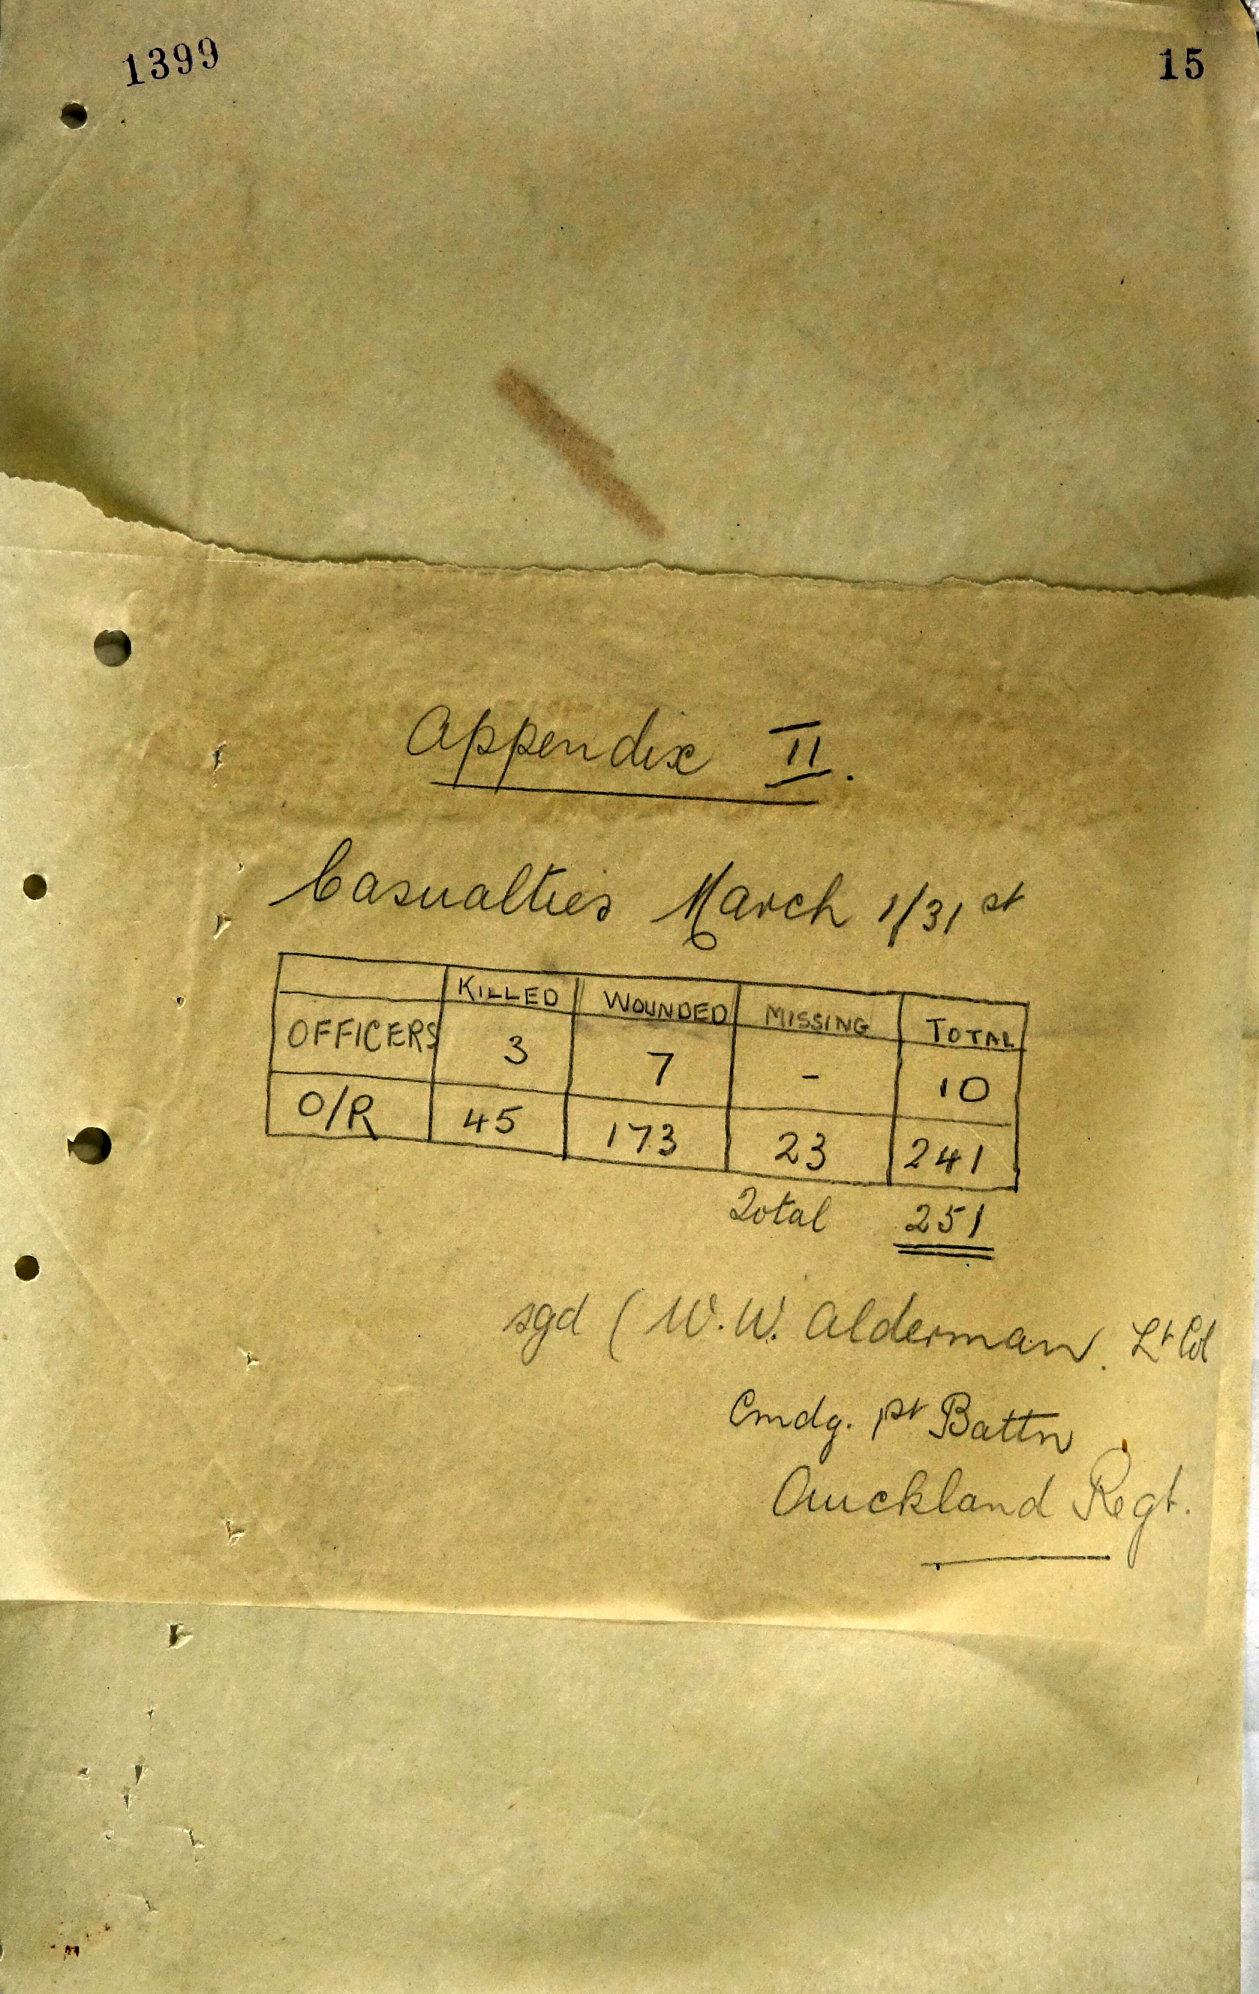 1399 15
Appendix II.
Casualties March 1/31st
KILLED WOUNDED MISSING TOTAL
OFFICERS 3 7 - 10
O/R 45 173 23 241
Total 251
sgd (W.W. Alderman. Lt Col
Cmdg. 1st Battn
Auckland Regt.